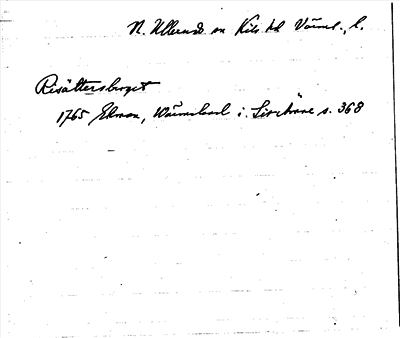 N. Ullerud sn Kils hd Värml. l.
Risättersberget
1765 Ekman, Wärmeland i. Sin s. 368